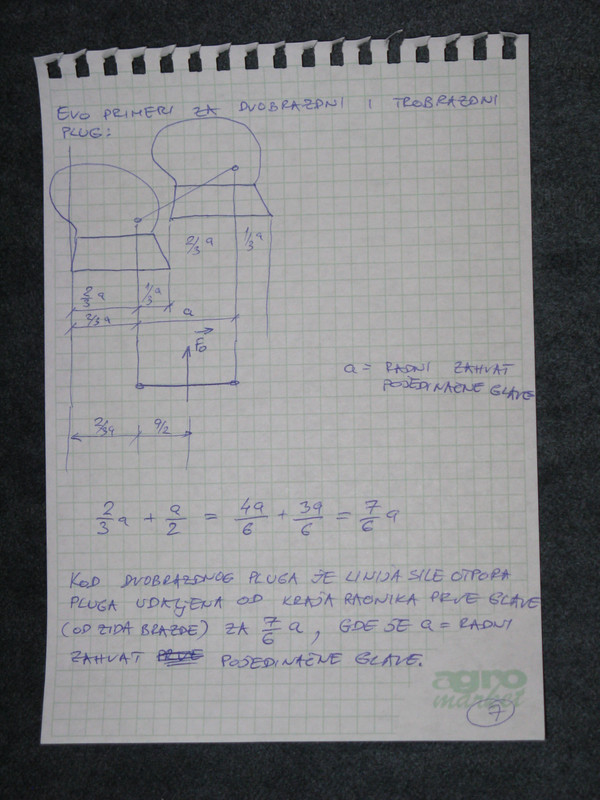 EVO PRIMERI ZA DVOBRAZDNI I TROBRAZDNI
PLUG:
2/3 a 1/3 a
2/3 a 1/3 a
2/3 a a
Fo
a = RADNI ZAHVAT
POJEDINAČNE GLAVE
2/3 a a/2
2/3 a + a/2 = 4a/6 + 3a/6 = 7/6 a
KOD DVOBRAZDNOG PLUGA JE LINIJA SILE OTPORA
PLUGA UDALJENA OD KRAJA RAONIKA PRVE GLAVE
(OD ZIDA BRAZDE) ZA 7/6 a, GDE JE a = RADNI
ZAHVAT PRVE POJEDINAČNE GLAVE.
agro
market
7